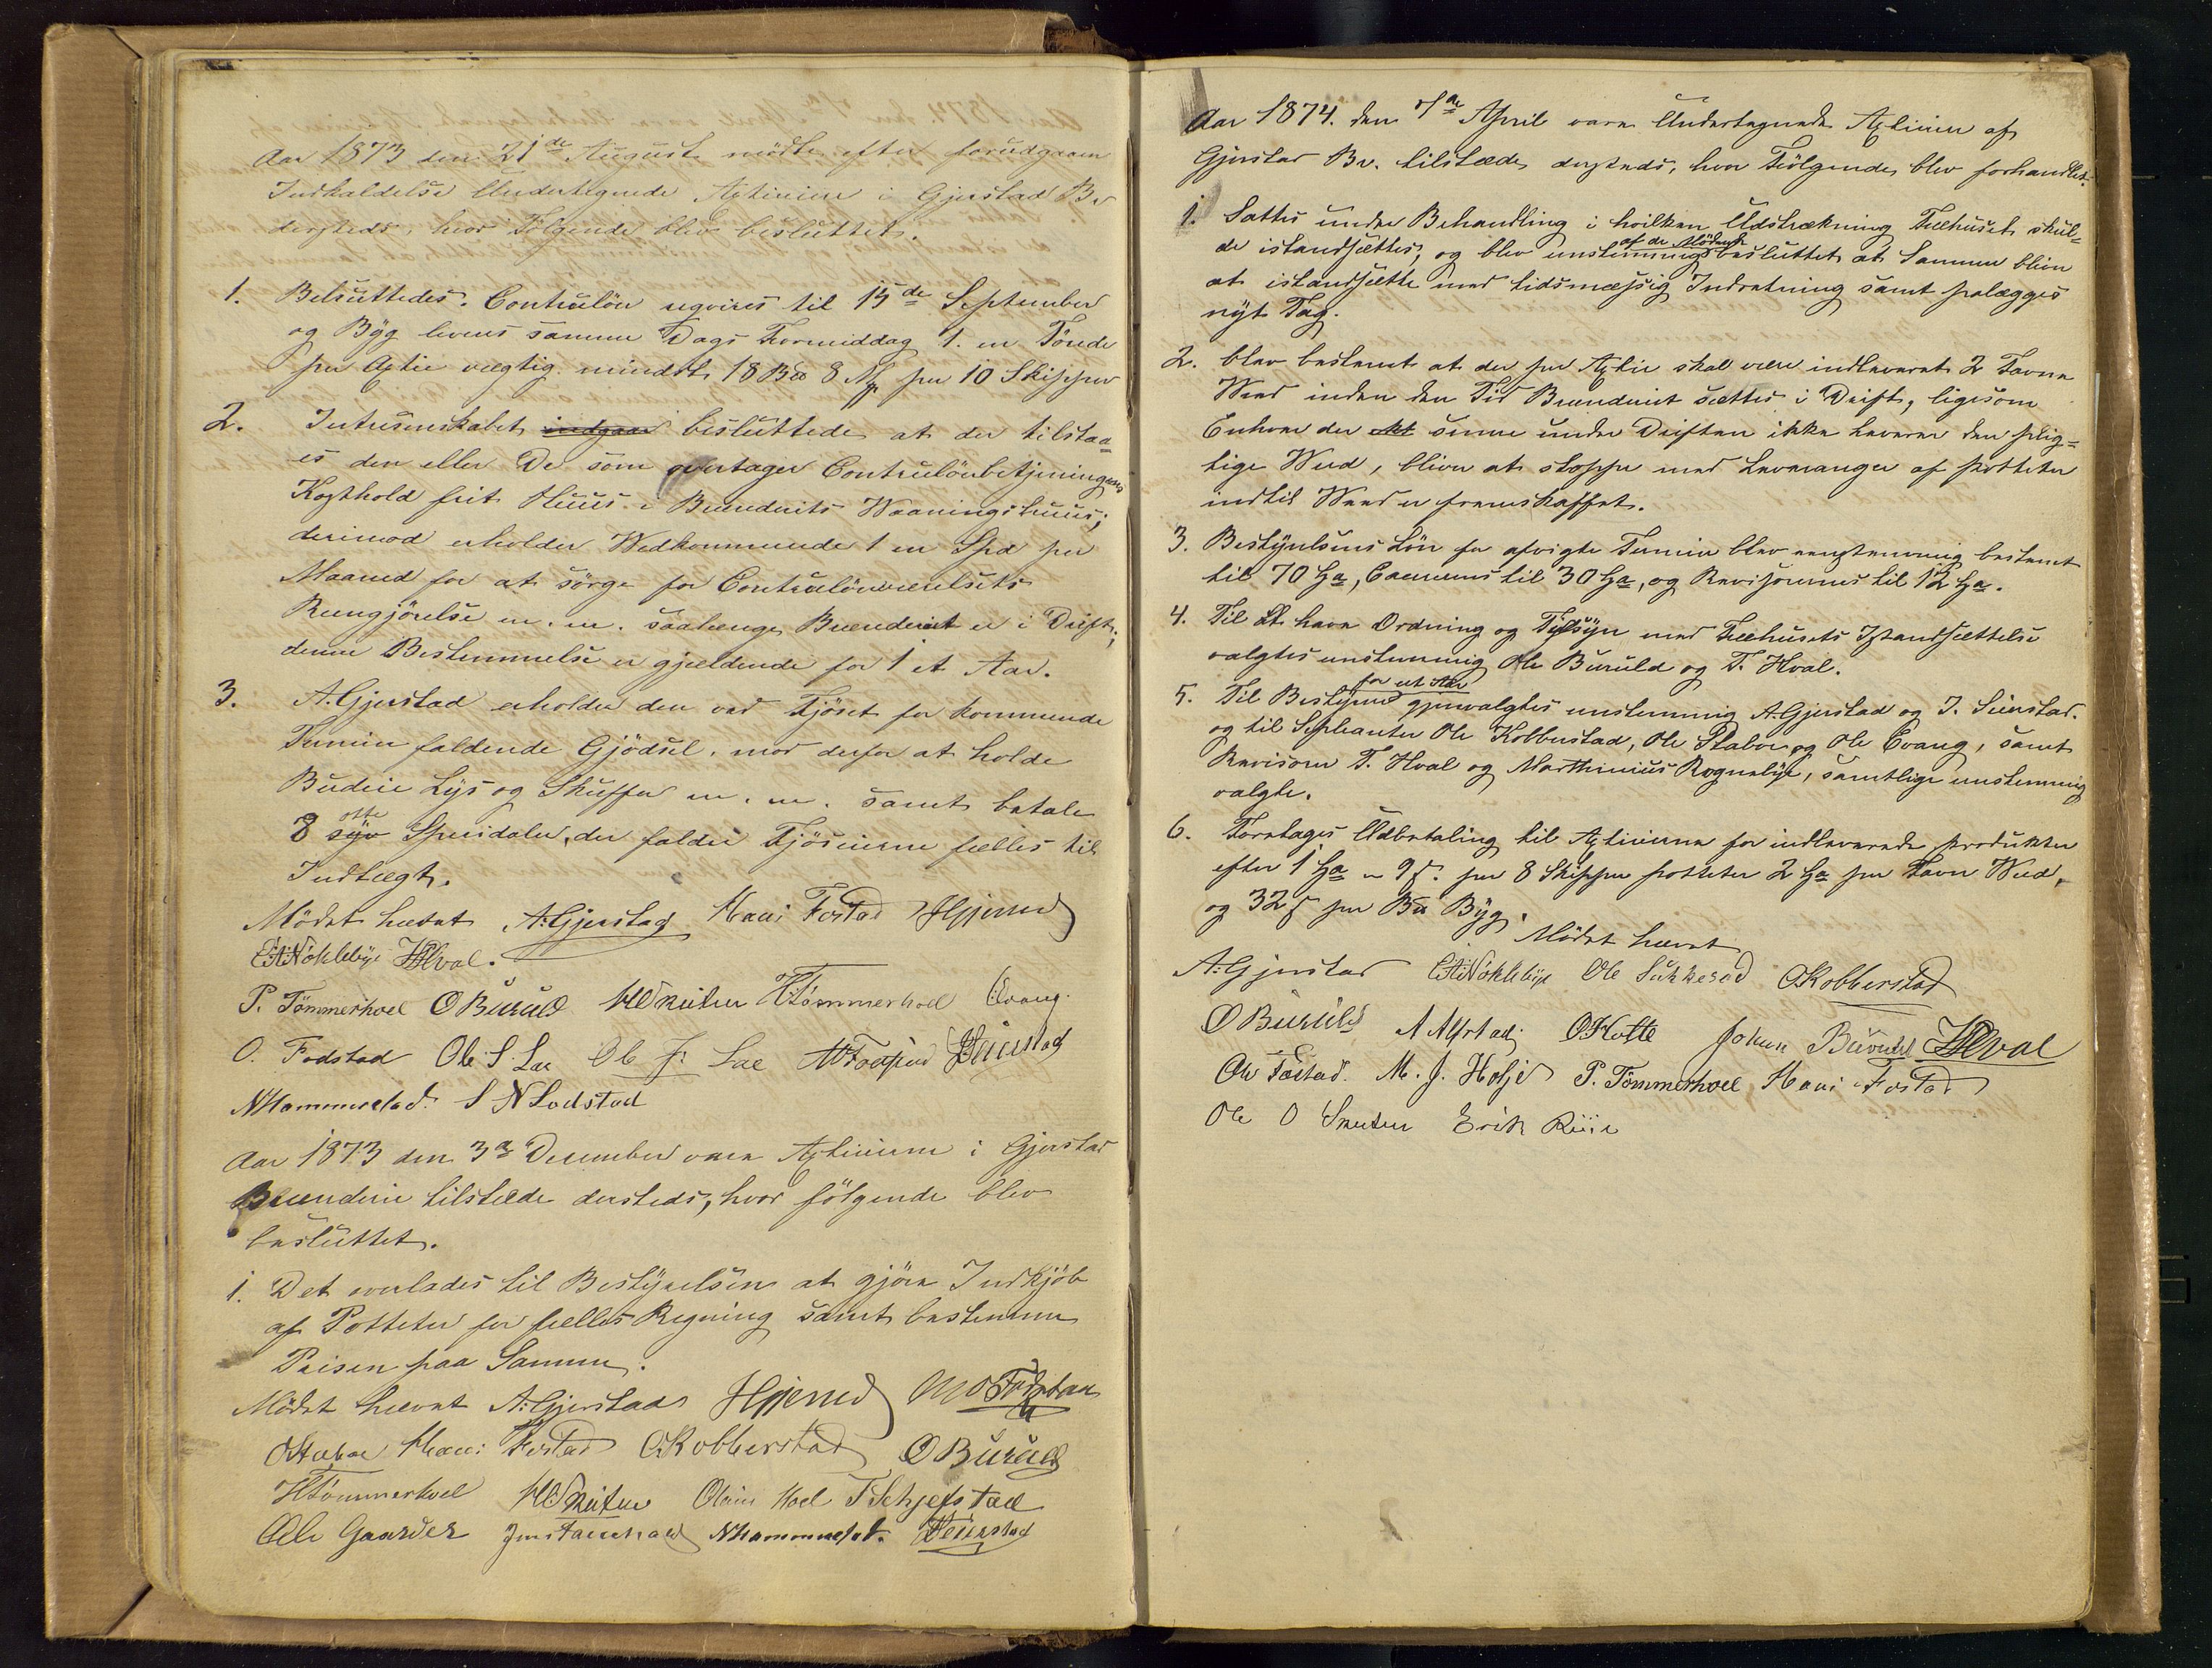 Aar 1873 den 21de August mödte efter forudgaaen
Indkaldelse Undertegnede Actieeiere i Gjerstad Br
dersteds, hvor Følgende blev besluttet.
1. Belsuttedes. Contralön regvires til 15de September
og Byg leveres samme Dags Formiddag 1. en Tönde
per Actie vægtig mindst 18 B℔ 8 Mk per 10 Skipper
2. Intresenskabet indgaar besluttede at der tilstaa
es den eller De som overtager Contralörbetjeningens
Kosthold frit Huus i Brænderits Waaningshuus;
derimod erholder Wedkommende 1 en Spd per
Maaned for at sörge for Contralörværelsets
Rengjörelse m. m. saalænge Brænderiet er i Drift;
denne Bestemmelse er gjældende for 1 et Aar.
3. A. Gjerstad erholder den ved Fjöset for kommende
Termin faldende Gjödsel, mod derfor at holde
Budeie Lys og Skuffer m. m. samt betale
otte
8 syv Speridaler, der falder Fjöseierne fælles til
Indtægt.
Mödet hævet A. Gjerstad Hans Fostad
E. A. Nöklebye THval.
P. Tömmerhoel O Buruld HTömmerhoel Evang.
O. Fodstad Ole S. Lae Ole J: Lae
NHammerstad. S N Lodstad
Aar 1873 den 3de December vare Actieeierne i Gjerstad
Brænderie tilstede dersteds, hvor fölgende blev
besluttet.
1. Det overlades til Bestyrelsen at gjöre Indkjöb
af Potteter for fælles Regning samt bestemme
Prisen paa Samme.
Mödet hævet A. Gjerstad
OStaboe Hans Fostad OKobberstad O Buruld
HTömmerhoel Hoel T Schjefstad
Ole Gaarder NHammerstad.
Aar 1874. den 7de April vare Undertegnede Actieeiere af
Gjerstad Br. tilstæde dersteds, hvor Fölgende blev forhandlet.
1. Sattes under Behandling i hvilken Udstrækning Fæehuset skul=
af de Mödende
de istandsættes, og blev enstemmigt besluttet at Samme bliver
at istandsætte med tidsmæssig Indretning samt paalægges
nyt Tag.
2. blev bestemt at der per Actie skal være indleveret 2 Favne
Weed inden den Tid Brænderiet sættes i Drift, ligesom
Enhver der senere under Driften ikke leverer den plig=
tige Weed, bliver at stoppe med Leverancer af potteter
indtil Weed er fremskaffet.
3. Bestyrelsens Lön for afvigte Termin blev eenstemmig bestemt
til 70 Spd, Casserens til 30 Spd, og Revisorernes til 12 Spd.
4. Til at have Ordning og Tilsyn med Fæehusets Istandsættelse
valgtes enstemmig Ole Buruld og T. Hval.
for et Aar
5. Til Bestyrere gjenvalgtes enstemmig A. Gjerstad og J. Seierstad.
og til Suppleanter Ole Kobberstad, Ole Staboe og Ole Evang, samt
Revisorer T. Hval og Marthinius Rognebye, samtlige enstemmig
valgte.
6. Foretages Udbetaling til Actieeierne for indleverede produkter
efter 1 Spd 9 s. per 8 Skipper potteter 2 Spd per Favn Weed,
og 32 s per B℔ Byg.
Mödet hævet
A. Gjerstad E. A. Nöklebye Ole Sukkesöd OKobberstad
O Buruld OHolte Johan THval
Ole Fostad. M. J. Holje P. Tömmerhoel Hans Fostad
Ole O Skuten Erik Riise